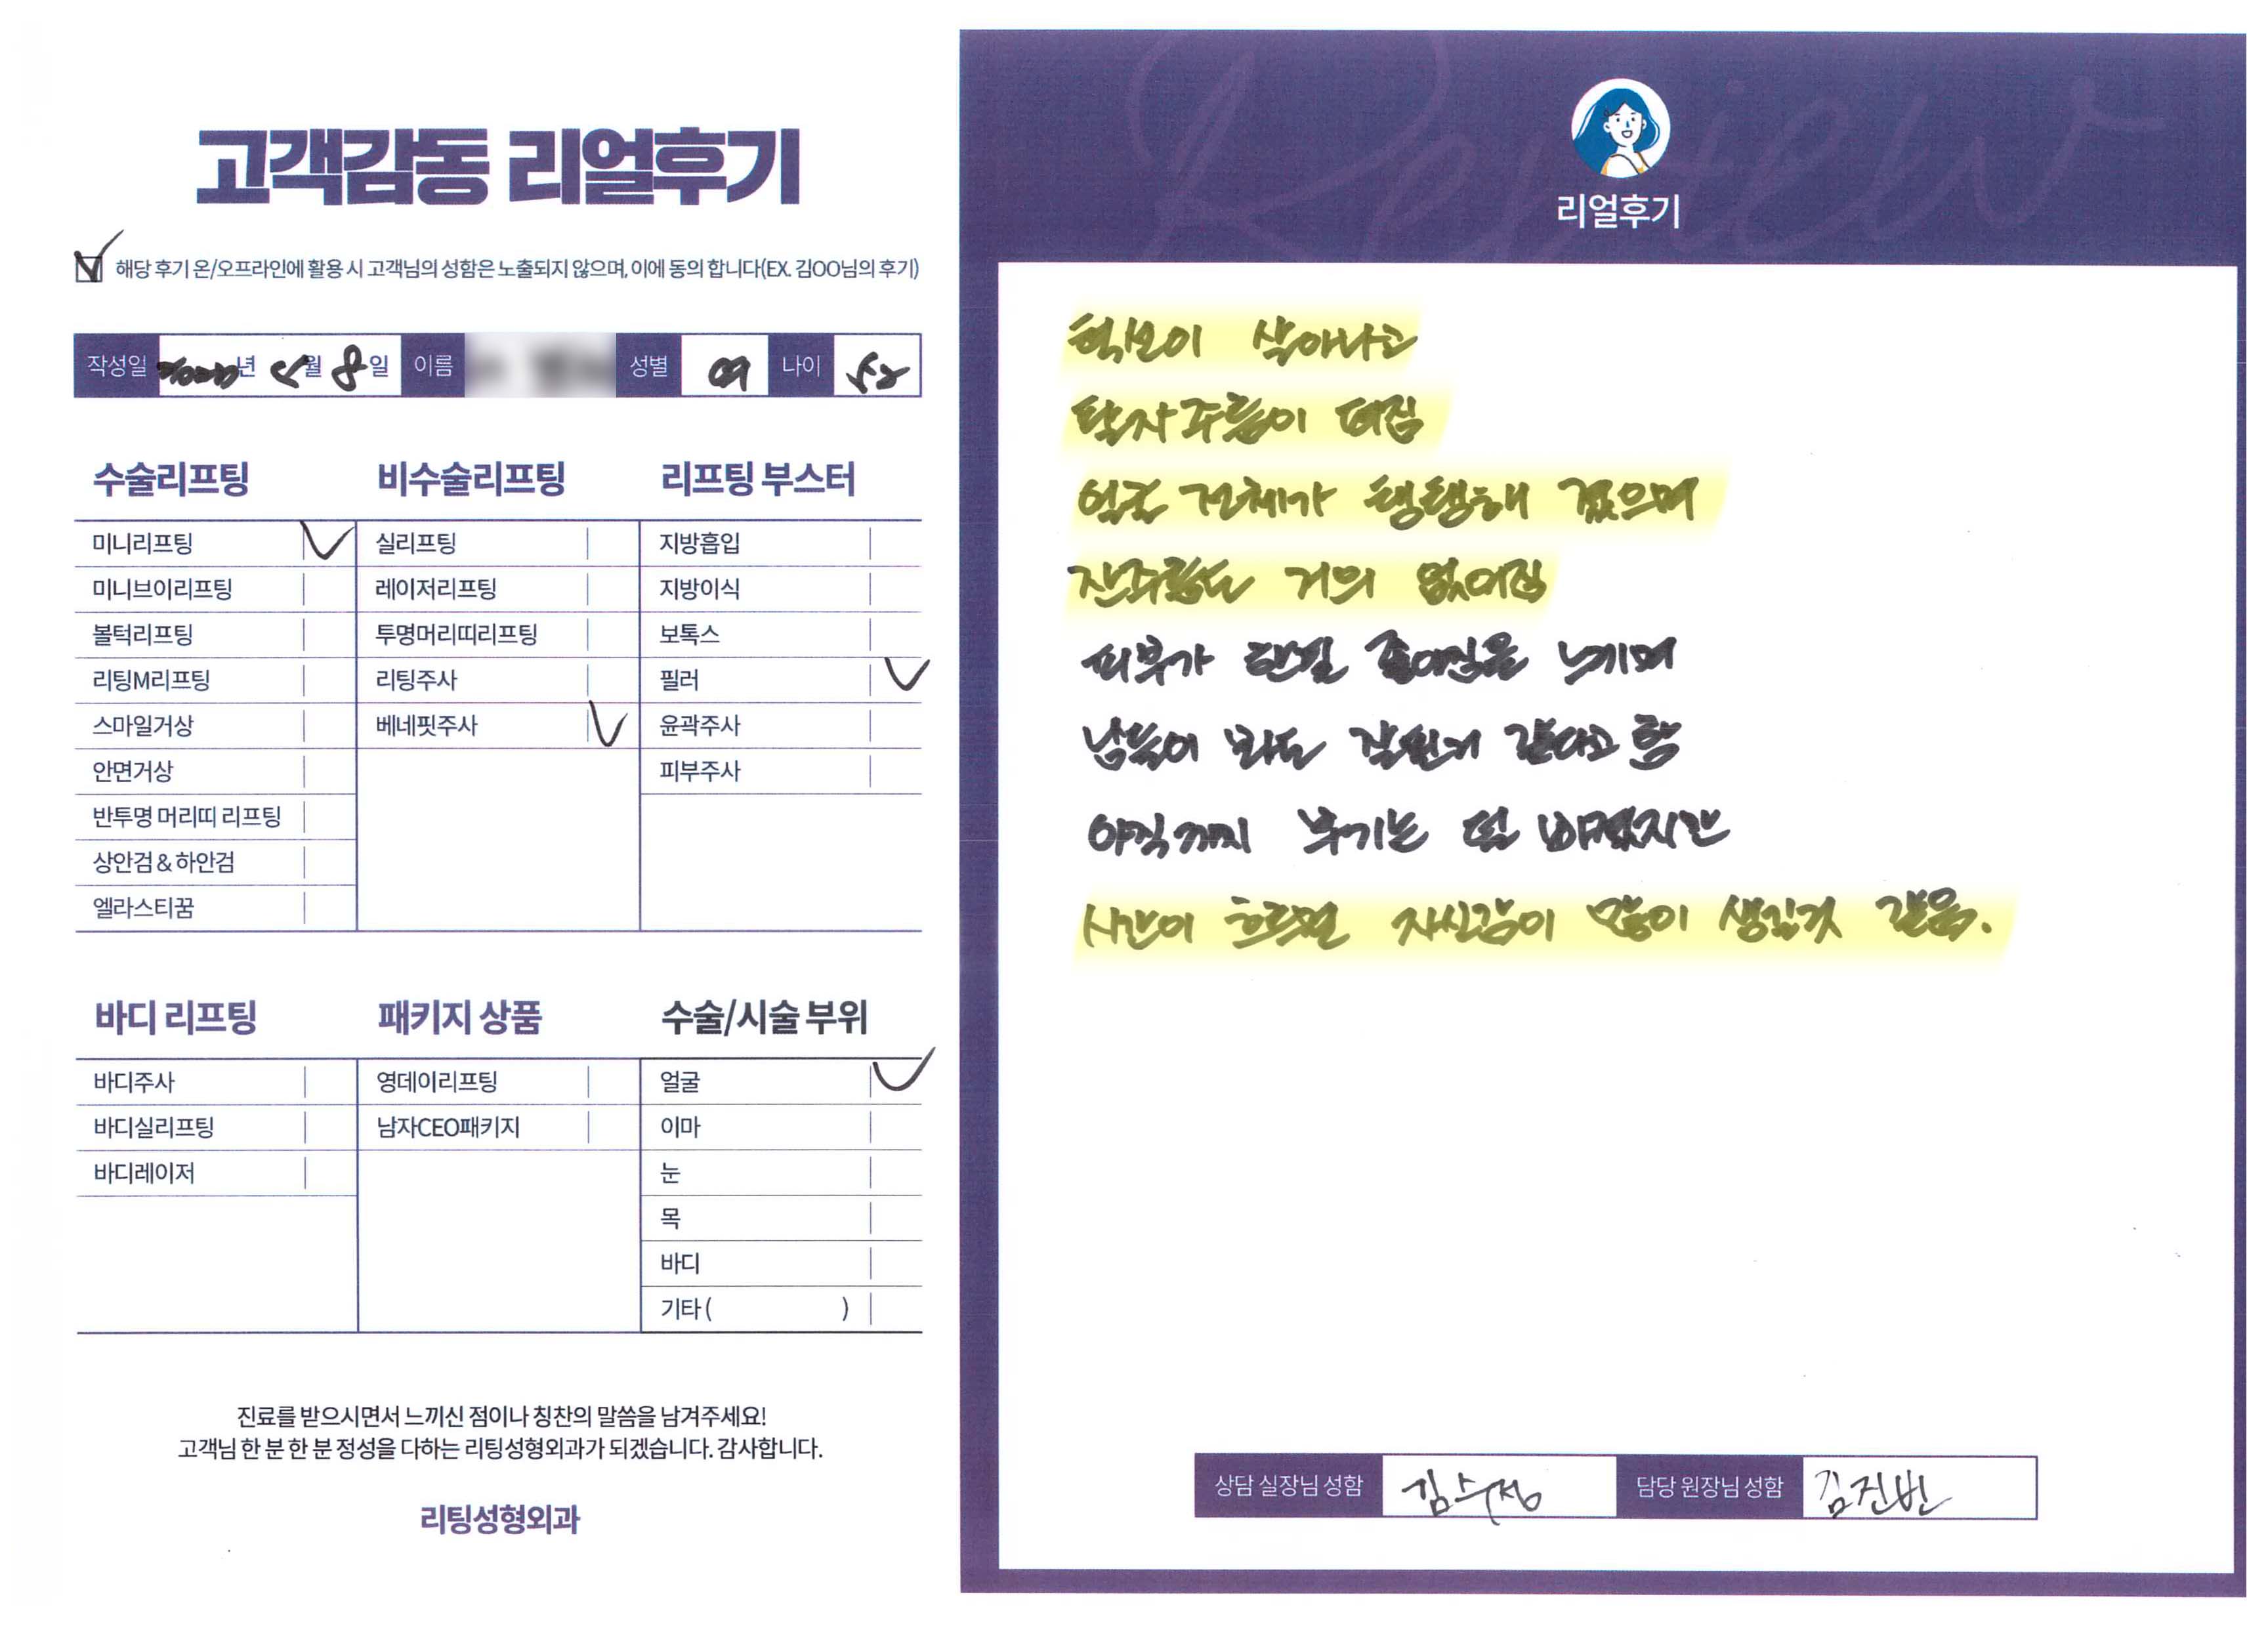 고객감동 리얼후기
해당 후기 온/오프라인에 활용 시 고객님의 성함은 노출되지 않으며, 이에 동의 합니다(EX. 김OO님의 후기)
작성일 년 5월 8일 이름 성별 여 나이 52
수술리프팅
미니리프팅
미니브이리프팅
볼턱리프팅
리팅M리프팅
스마일거상
안면거상
반투명 머리띠 리프팅
상안검 & 하안검
엘라스티꿈
비수술리프팅
실리프팅
레이저리프팅
투명머리띠리프팅
리팅주사
베네핏주사
리프팅 부스터
지방흡입
지방이식
보톡스
필러
윤곽주사
피부주사
바디 리프팅
바디주사
바디실리프팅
바디레이저
패키지 상품
영데이리프팅
남자CEO패키지
수술/시술 부위
얼굴
이마
눈
목
바디
기타 ( )
진료를 받으시면서 느끼신 점이나 칭찬의 말씀을 남겨주세요!
고객님 한 분 한 분 정성을 다하는 리팅성형외과가 되겠습니다. 감사합니다.
리팅성형외과
Review
리얼후기
턱선이 살아나고
팔자주름이 펴짐
얼굴 전체가 탱탱해 졌으며
잔주름도 거의 없어짐
피부가 한결 좋아짐을 느끼며
남들이 봐도 잘된거 같다고 함
아직까지 부기는 덜 빠졌지만
시간이 흐르면 자신감이 많이 생길것 같음.
상담 실장님 성함 김수정 담당 원장님 성함 김진빈